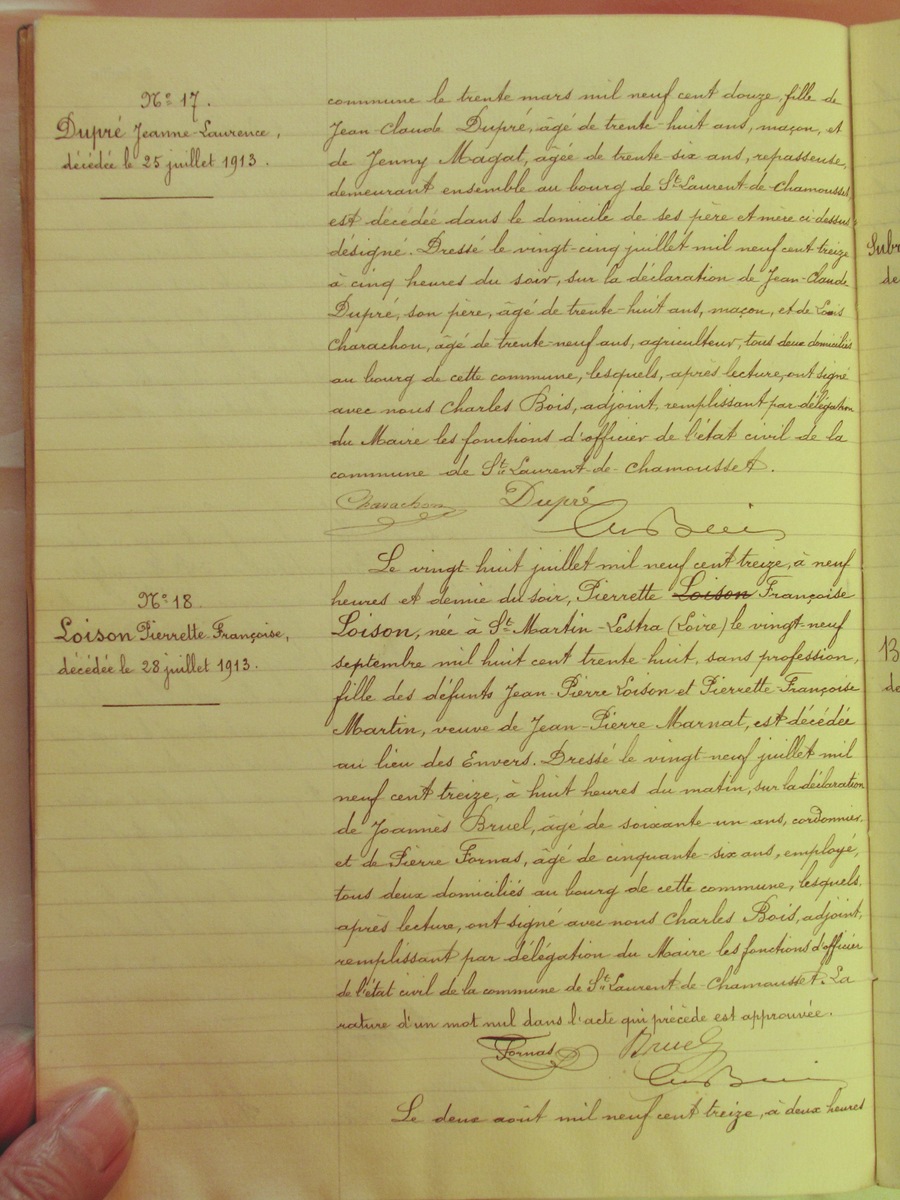 N° 17.
Dupré Jeanne-Laurence,
décédée le 25 juillet 1913.
commune le trente mars mil neuf cent douze, fille de
Jean-Claude Dupré, âgé de trente-huit ans, maçon, et
de Jenny Magat, âgée de trente-six ans, repasseuse,
demeurant ensemble au bourg de St Laurent-de-Chamousset
est décédée dans le domicile de ses père et mère ci-dessus
désigné. Dressé le vingt-cinq juillet mil neuf cent treize
à cinq heures du soir, sur la déclaration de Jean-Claude
Dupré, son père, âgé de trente-huit ans, maçon, et de Louis
Charachon, âgé de trente-neuf ans, agriculteur, tous deux domiciliés
au bourg de cette commune, lesquels, après lecture, ont signé
avec nous Charles Bois, adjoint, remplissant par délégation
du Maire les fonctions d'officier de l'état civil de la
commune de St Laurent-de-Chamousset.
Charachon Dupré
N° 18.
Loison Pierrette Françoise,
décédée le 28 juillet 1913.
Le vingt-huit juillet mil neuf cent treize, à neuf
heures et demie du soir, Pierrette Loison Françoise
Loison, née à St Martin-Lestra (Loire) le vingt-neuf
septembre mil huit cent trente-huit, sans profession,
fille des défunts Jean-Pierre Loison et Pierrette Françoise
Martin, veuve de Jean-Pierre Marnat, est décédée
au lieu des Envers. Dressé le vingt-neuf juillet mil
neuf cent treize, à huit heures du matin, sur la déclaration
de Joannès Bruel, âgé de soixante-un ans, cordonnier,
et de Pierre Fornas, âgé de cinquante-six ans, employé,
tous deux domiciliés au bourg de cette commune, lesquels,
après lecture, ont signé avec nous Charles Bois, adjoint,
remplissant par délégation du Maire les fonctions d'officier
de l'état civil de la commune de St Laurent-de-Chamousset. La
rature d'un mot nul dans l'acte qui précède est approuvée.
Fornas Bruel
Le deux août mil neuf cent treize, à deux heures